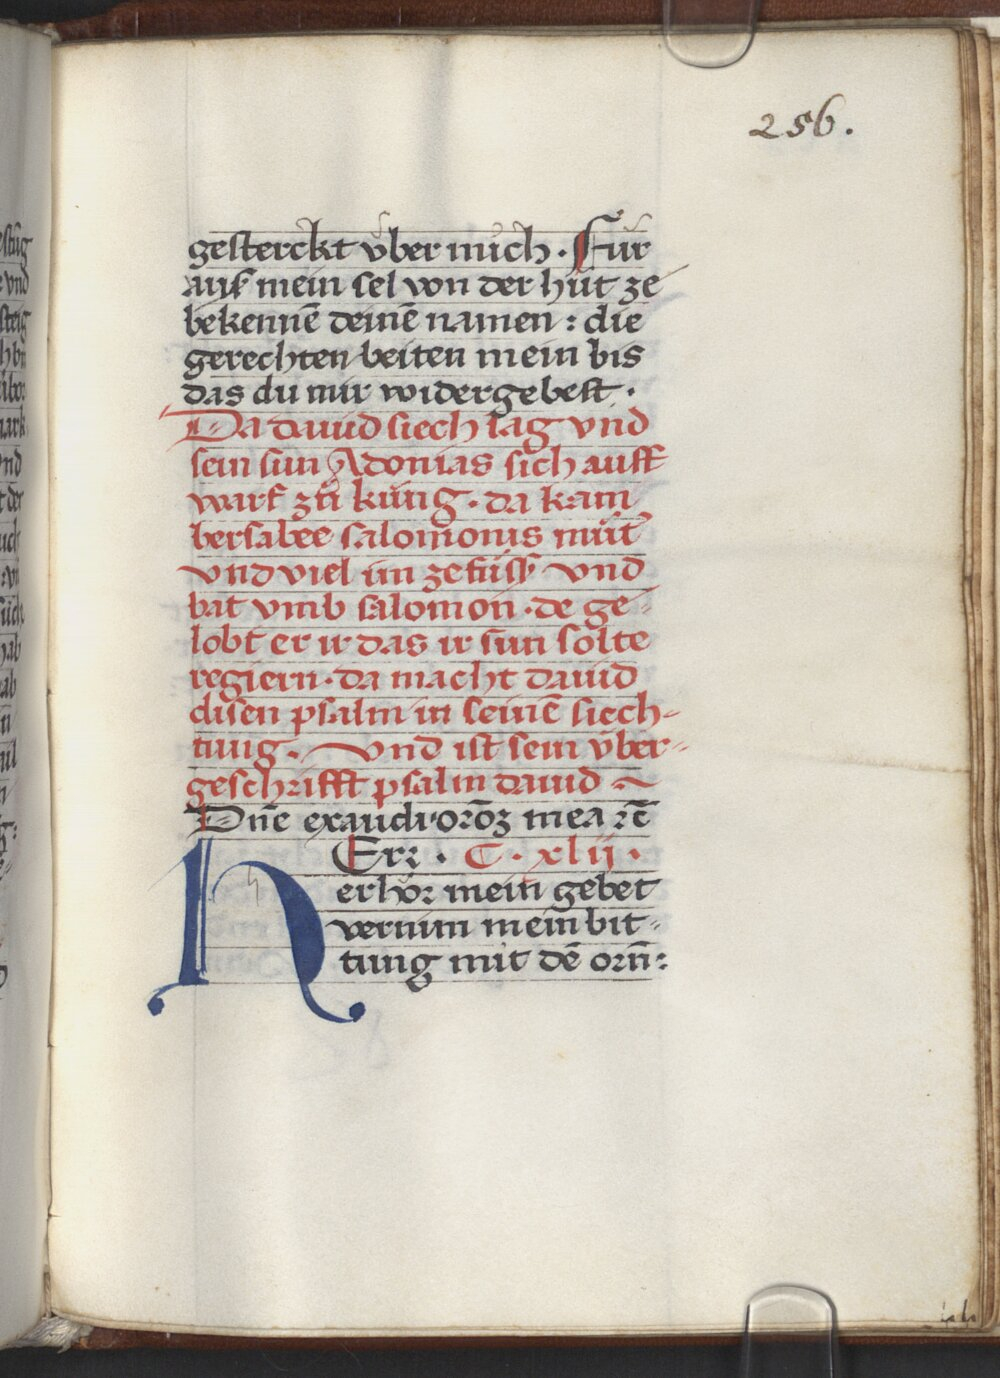 256.
gesterckt vͤber mich · Für
auſs mein sel von der hüt ze
bekennē deinē namen : die
gerechten beiten mein bis
das du mir widergebest ·
Da dauid siech lag vnd
sein sun Adonias sich auff
warf zů küng · da kam
bersabee salomonis můt̄
vnd viel im ze füss vnd
bat vmb salomon · de ge-
lobt er ir das ir sun solte
regiern · da macht dauid
disen psalm in seinē siech-
tung · vnd ist sein v̈ber-
geschrifft psalm dauid ~
Dn̄e exaudi orōȝ mea rc̄
HErr · C · xlij ·
erhör mein gebet
vernim mein bit-
tung mit dē orn̄ :